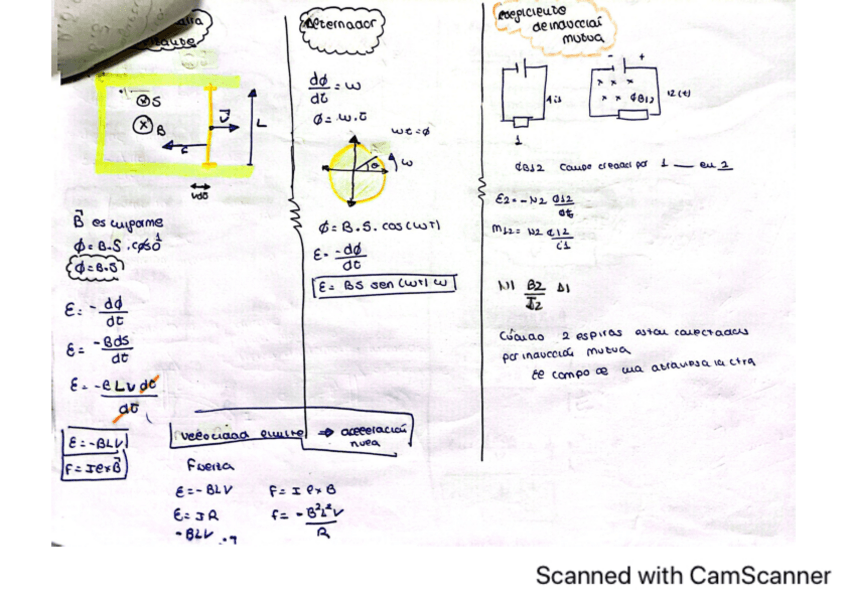 ⊗ S
⊗ B
V
F
L
vdt
B es uniforme
Φ = B.S. cos0
Φ=B.S
ε = -dΦ/dt
ε = -Bds/dt
ε = -BLVdt/dt
ε = -BLV
F= Ie×B
Alternador
dΦ/dt = w
Φ= w.t
wt=Φ
θ
w
Φ= B.S. cos(wt)
ε= -dΦ/dt
ε= BS sen(wt) w
velocidad limite ⇒ aceleración
nula
Fuerza
ε=-BLV
ε= IR
-BLV
F= I e×B
F= -B²L²V/R
coeficiente
de inducción
mutua
- +
1
x x x
x x ΦB12
i2(t)
ΦB12 campo creado por 1 — en 2
ε2= -N2 Φ12/dt
M12= N2 Φ12/i1
N1 B2/I2 S1
Cuando 2 espiras estan conectadas
por inducción mutua
el campo de una atraviesa la otra
Scanned with CamScanner